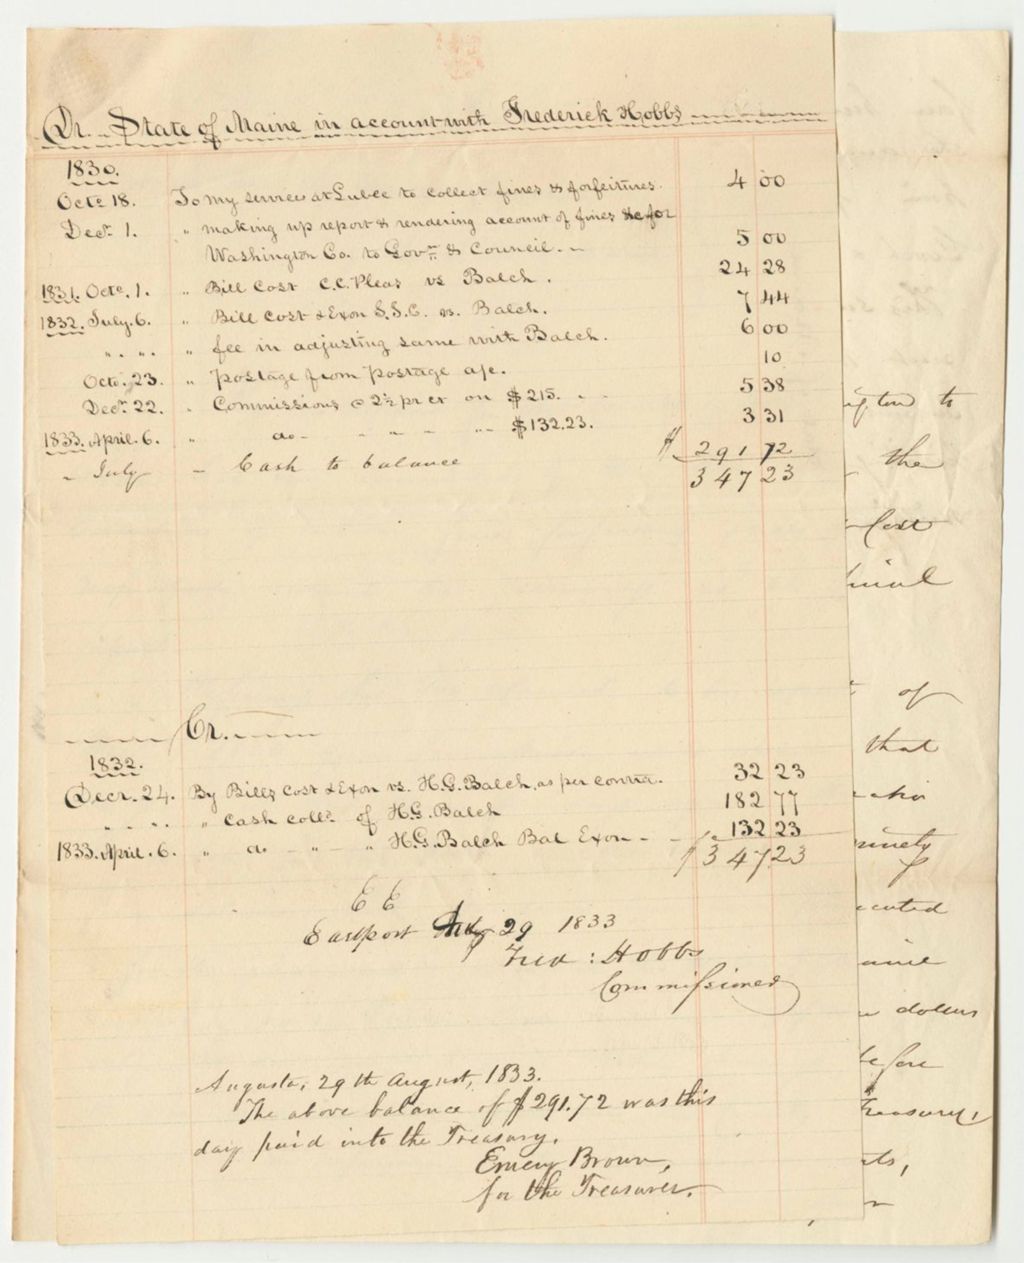 Dr. State of Maine in account with Frederick Hobbs
1830.
Octr 18. To my services at Lubec to collect fines & forfeitures. 4 00
Decr 1. " making up report & rendering account of fines &c for
Washington Co. to Govr & Council. - 5 00
1831. Octr. 1. " Bill Cost C.C. Pleas vs Balch. 24 28
1832. July. 6. " Bill Cost & Exon S.J.C. vs. Balch. 7 44
" " " fee in adjusting same with Balch. 6 00
Octr. 23. " Postage from postage a/c. 10
Decr 22. " Commissions @ 2½ pr ct on $215. - - 5 38
1833. April. 6. " do - - - - $132.23. 3 31
" July - Cash to balance $ 291 72
347 23
Cr.
1832.
Decr. 24. By Bills Cost & Exon vs. H.G. Balch, as per contra. 32 23
" " " Cash colld. of H.G. Balch 182 77
1833. April. 6. " do " " H.G. Balch Bal Exon - - 132 23
$ 347 23
E E
Eastport 29 1833
Fred : Hobbs
Commissioner
Augusta, 29th August, 1833.
The above balance of $291.72 was this
day paid into the Treasury.
Emery Brown,
for the Treasurer.
to
the
Cost
of
that
dollars
before
Treasury,